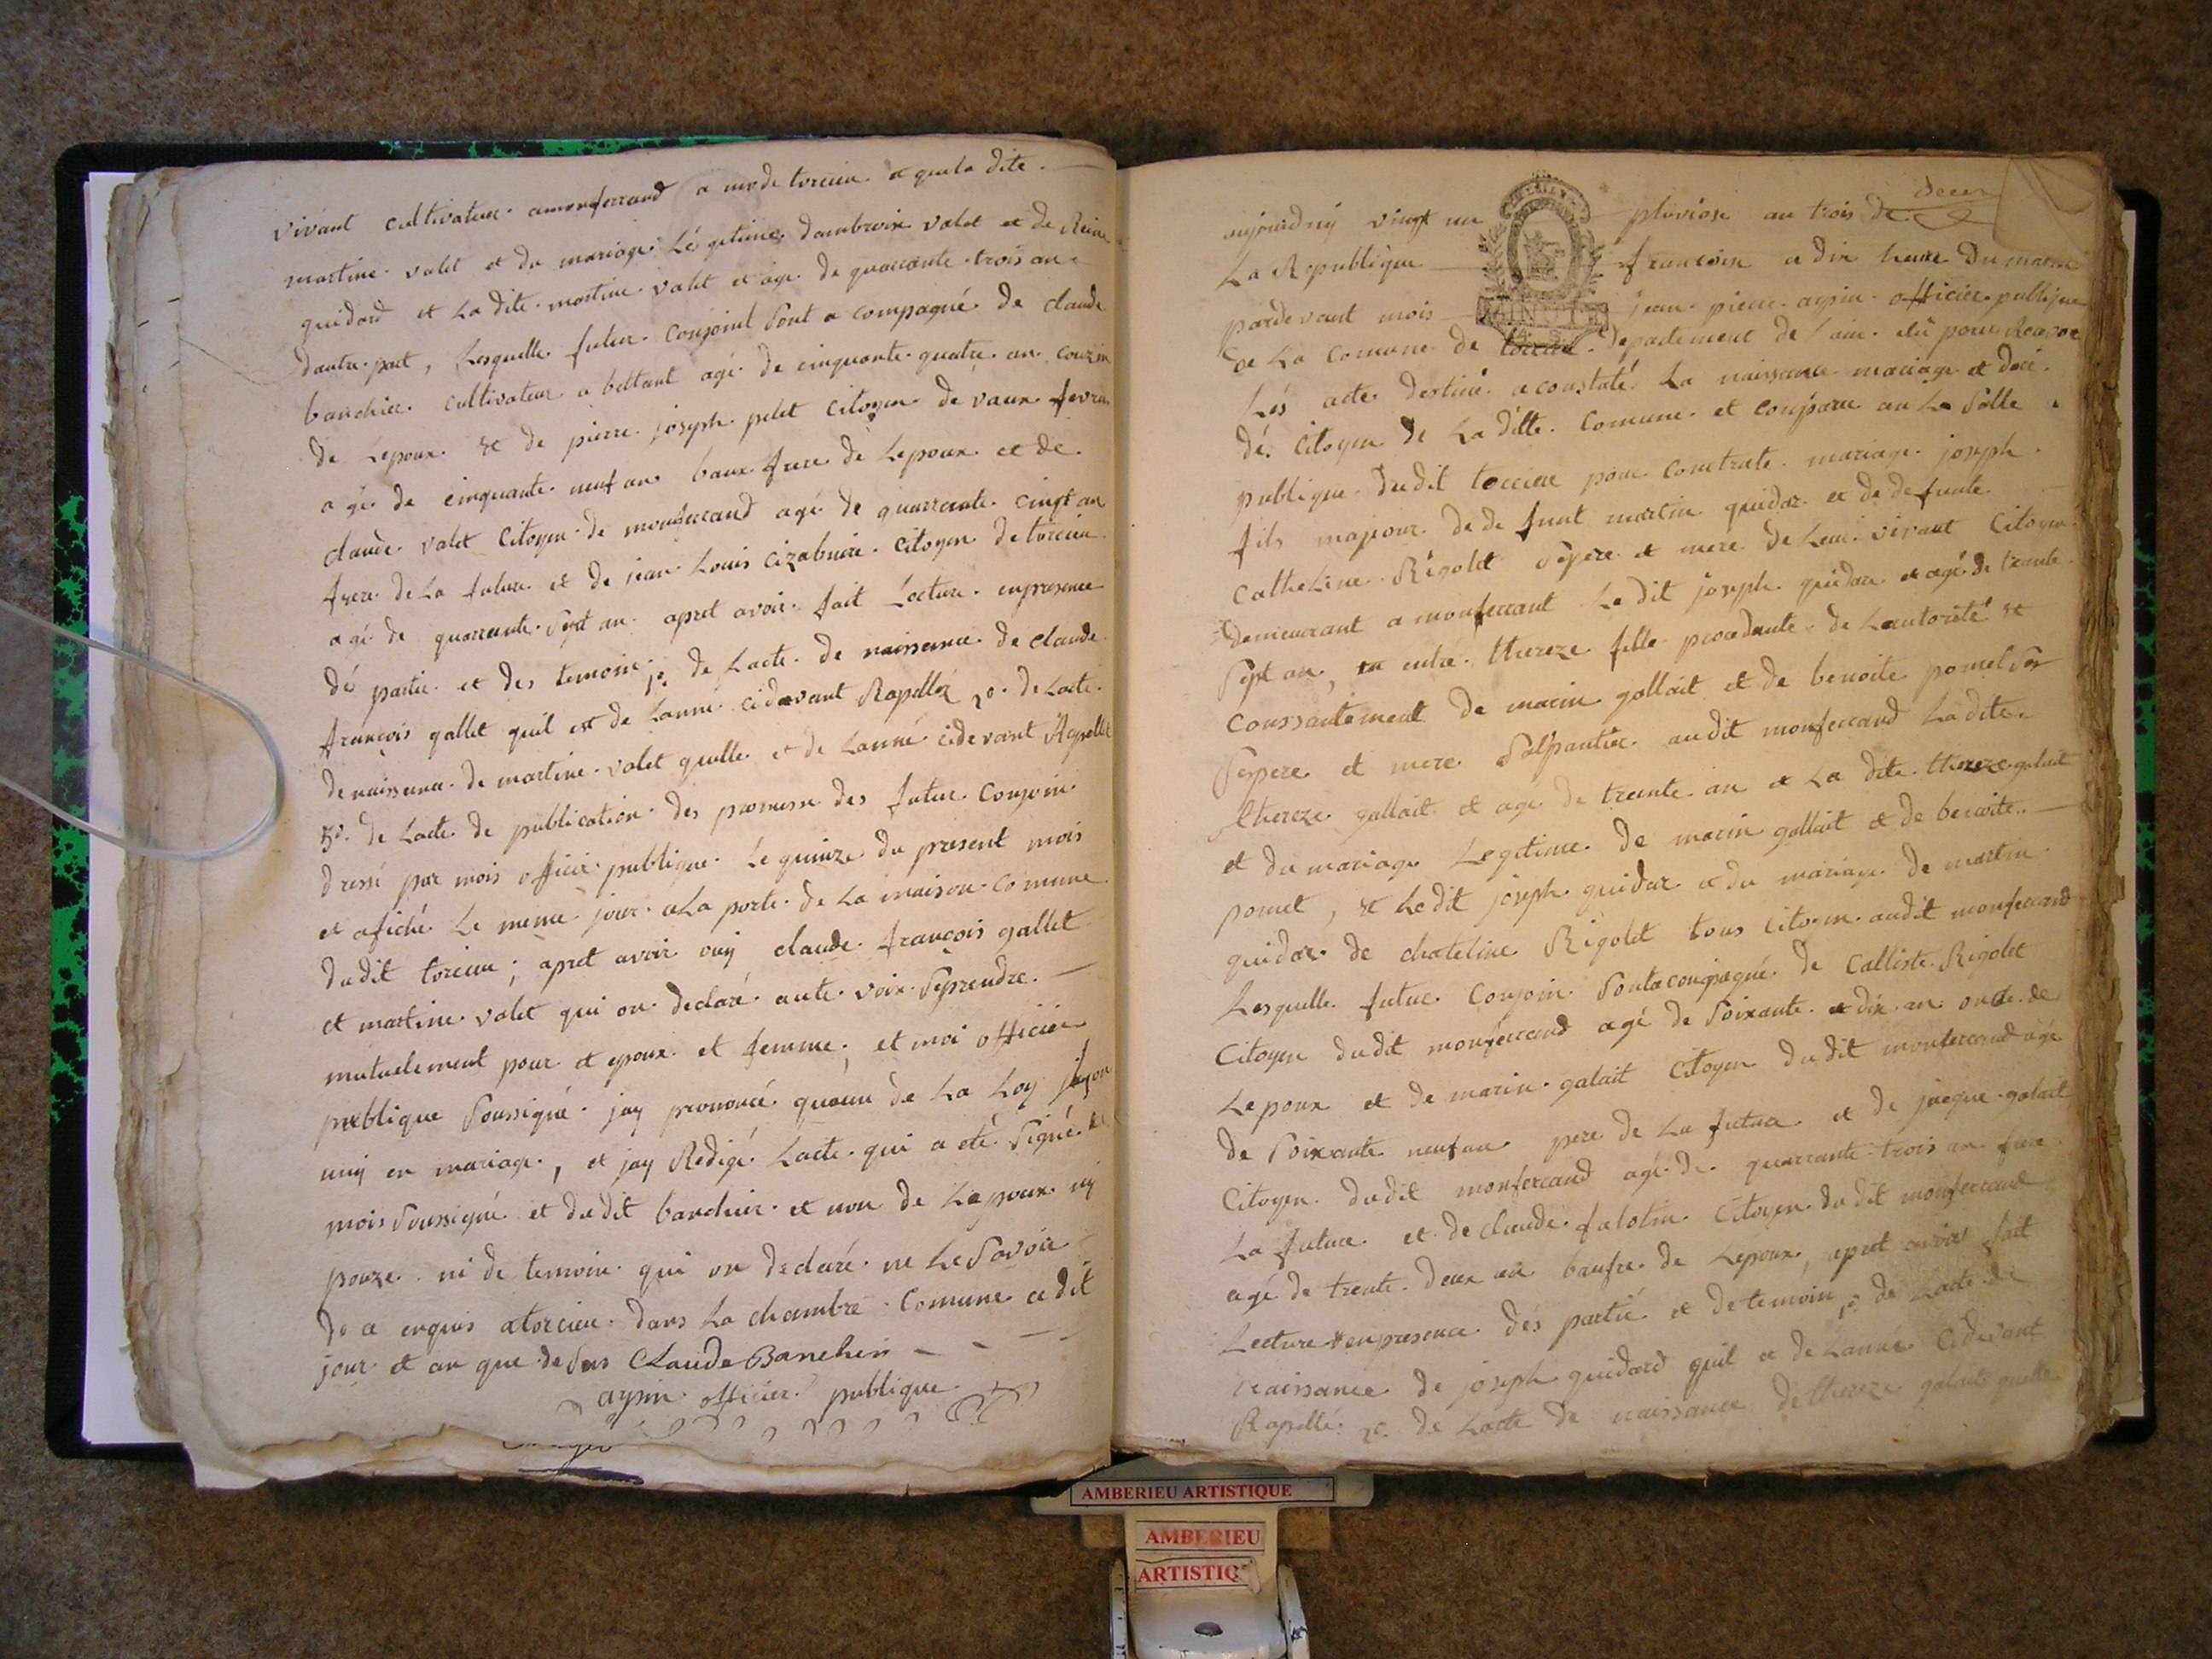 vivant cultivateur amonferrand a mede torcieu et quela dite
martine valet et du mariage Légetime dambroix valet et de Reine
guidard et La dite martine valet et age de quarante trois an
dautre part, Lesquelle futur conjoint Sont a compagné de claude
banchier cultivateur a bettant agé de cinquante quatre an couzin
de Lepoux et de pierre joseph pelet citoyen de vaux fevroy
agé de cinquante neuf an baux frere de Lepoux et de
claude valet citoyen de monferrand agé de quarrante cinqt an
frere de La future et de jean Louis cizabuire citoyen de torcieu
agé de quarrante Sept an apret avoir fait Lecture enpresence
dé partie et des temoin 1o. de Lacte de naissance de claude
françois gallet quil est de Lanné cidevant Rapellé 2o. de Lacte
de naissance de martine valet quelle et de Lanné cidevant Rapellé
3o. de Lacte de publication des promesse des futur conjoin
dressé par mois officié publique Le quinze du present mois
et afiché Le meme jour aLa porte de La maison comune
dudit torcieu; apret avoir ouy claude françois gallet
et martine valet qui on declaré aute voix Seprendre
mutuelement pour et epoux et femme, et moi officier
publique Soussigné jay prononcé quaux de La Loy
uniy en mariage, et jay Redigé Lacte qui a eté Signé de
mois Soussigné et dudit banchier et non de Lepoux ny
pouze ni de temoin qui on declaré ne Le Savoir
de a enquis atorcieu dans La chambre comune a dit
jour et an que deSus Claude Banchin
aypin officier publique
aujourdhuy vingt un pluviose an trois de
La Republique francoise a dix heure Dumatin
pardevant mois jean pierre aypin officier publique
de La comune de torcieu departement de lain elu pour Recevoir
Lés acte destiné a constaté La naissance mariage et decé
dé citoyen de La ditte comune et comparu au La Salle
publique dudit torcieu pour contrate mariage joseph
fils majeour de defunt martin guidar et de defunte
catheline Rigolet Sepere et mere de Leur vivant citoyen
demeurant a monferrant Le dit joseph guidar et agé de trante
Sept an, entre thereze fille procedante de Lautorité et
coussantement de marin gallait et de benoite pomet Son
Sepere et mere audit monferrand La dite
thereze gallait et agé de trente an et La dite thereze galait
et du mariage Legetime de marin gallait et de benoite
pomet, et Le dit joseph guidar et du mariage de martin
guidar de chateline Rigolet tous citoyen audit monferrand
Lesquelle futur conjoin Sontacompagné de calliste Rigolet
citoyen dudit monferrand agé de Soixante et dix an oncle de
Lepoux et de marin galait citoyen dudit monferrand agé
de Soixante neuf an pere de La future et de jacque galait
citoyen dudit monferrand agé de quarrante trois an frere
La future et de claude falotin citoyen dudit monferrand
agé de trente deux an baufre de Lepoux, apret avoir fait
Lecture enpresence dés partié et detemoin 1o. de Lacte de
naissance de joseph guidard quil et de Lanné cidevant
Rapellé 2o. de Lacte de naissance dethereze galait quelle
AMBERIEU ARTISTIQUE
AMBERIEU
ARTISTIQ